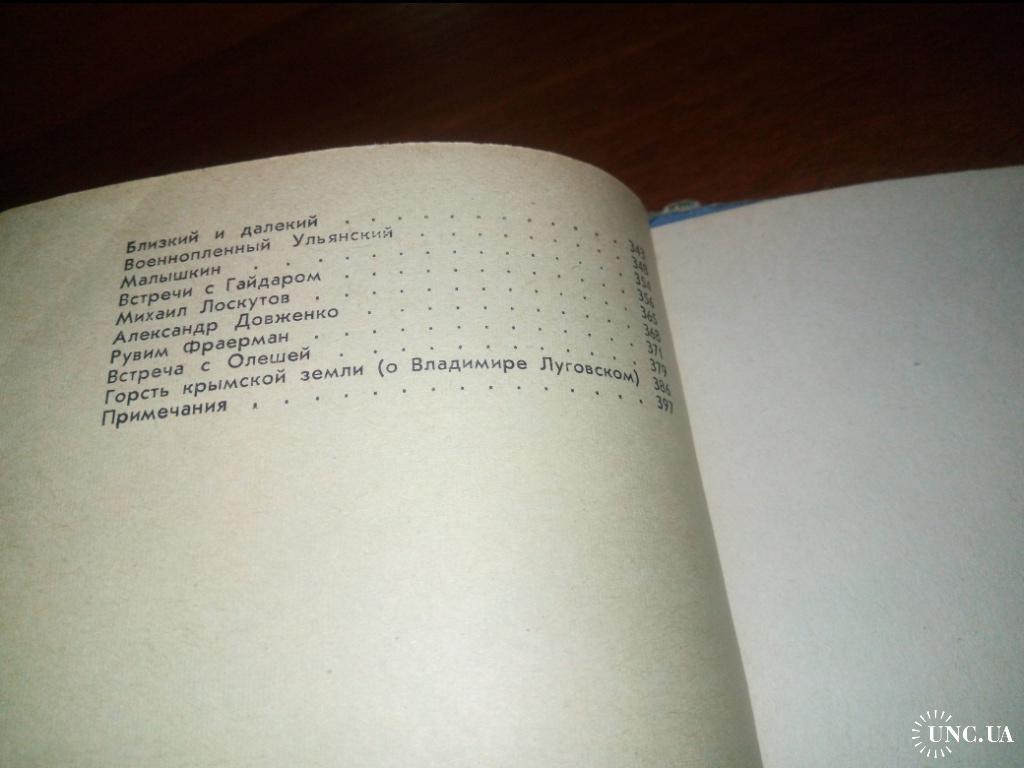 Близкий и далекий . . . . . . . . . . . 343
Военнопленный Ульянский . . . . . . . . 348
Малышкин . . . . . . . . . . . . . . 354
Встречи с Гайдаром . . . . . . . . . . . 356
Михаил Лоскутов . . . . . . . . . . . . 365
Александр Довженко . . . . . . . . . . . 368
Рувим Фраерман . . . . . . . . . . . . 371
Встреча с Олешей . . . . . . . . . . . . 379
Горсть крымской земли (о Владимире Луговском) 386
Примечания . . . . . . . . . . . . . . 397
UNC.UA